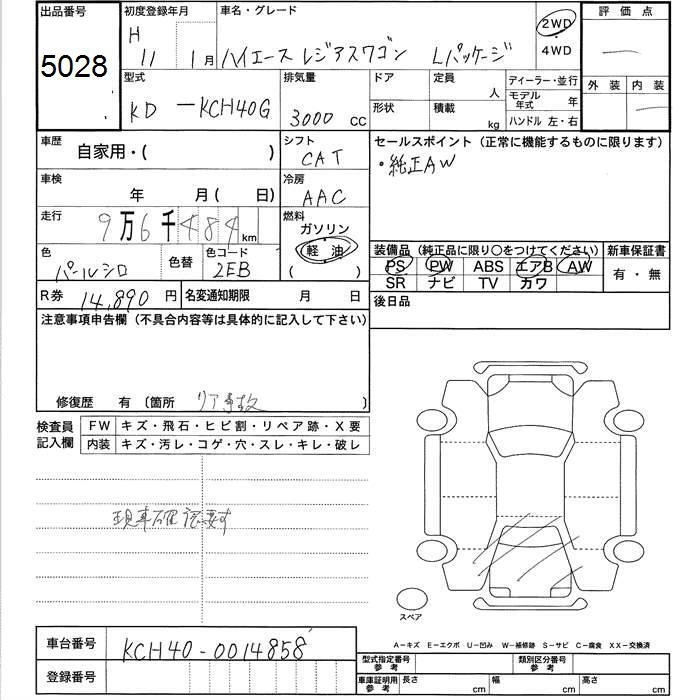 出品番号 初度登録年月 車名・グレード 評価点
5028
H 11 1月 ハイエース レジアスワゴン Lパッケージ 2WD
4WD
型式 排気量 ドア 定員 人 ディーラー・並行 外装 内装
KD-KCH40G 3000 CC 形状 積載 kg モデル年式 年
ハンドル 左・右
車歴 自家用・( ) シフト CAT セールスポイント (正常に機能するものに限ります)
・純正AW
車検 年 月( 日) 冷房 AAC
走行 9万6千484km 燃料 ガソリン
軽油
( )
色 パールシロ 色替 色コード 2EB
装備品 (純正品に限り○をつけてください) 新車保証書
PS PW ABS エアB AW 有・無
SR ナビ TV カワ
R券 14,890円 名変通知期限 月 日 後日品
注意事項申告欄 (不具合内容等は具体的に記入して下さい)
修復歴 有 〔箇所 リア事故 〕
検査員記入欄 FW キズ・飛石・ヒビ割・リペア跡・X要
内装 キズ・汚レ・コゲ・穴・スレ・キレ・破レ
現車確認要す
スペア
車台番号 KCH40-0014858
A-キズ E-エクボ U-凹み W-補修跡 S-サビ C-腐食 XX-交換済
登録番号
型式指定番号 参考 類別区分番号 参考
車庫証明用 参考 長さ cm 幅 cm 高さ cm